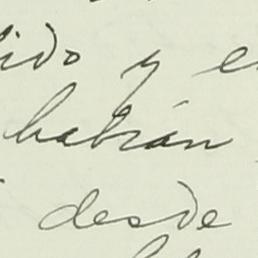 ido y e
habrán
desde